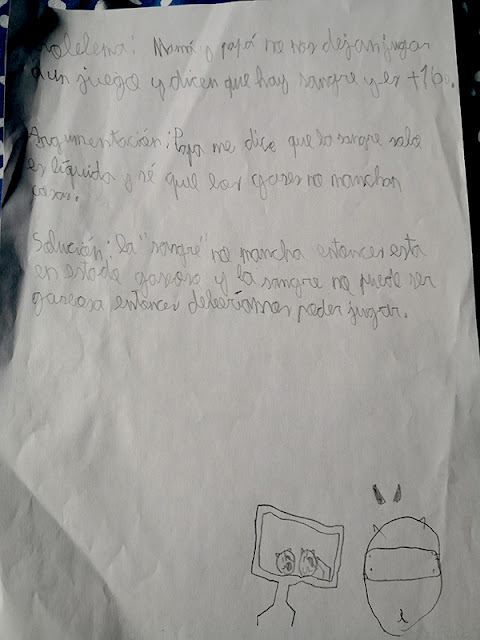 Problema: Mamá y papá no nos dejan jugar
a un juego y dicen que hay sangre y es +16.
Argumentación: Papa me dice que la sangre solo
es líquida y sé que los gases no manchan
cosas.
Solución: la "sangre" no mancha entonces está
en estado gaseoso y la sangre no puede ser
gaseosa entonces deberíamos poder jugar.